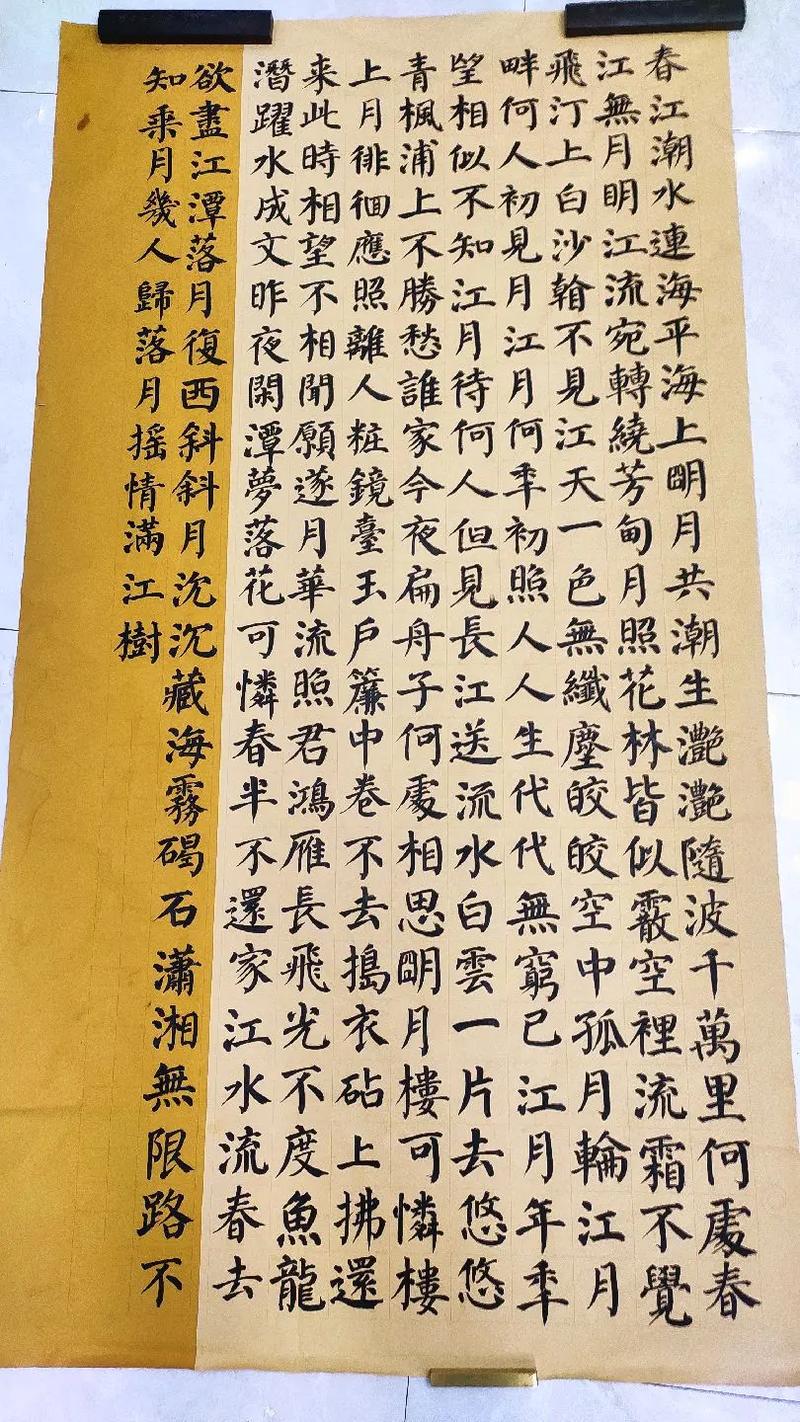 春江潮水連海平海上朙月共潮生灔灔隨波千萬里何處春
江無月眀江流宛轉繞芳甸月照花林皆似霰空裡流霜不覺
飛汀上白沙翰不見江天一色無纖塵皎皎空中孤月輪江月
畔何人初見月江月何秊初照人人生代代無窮已江月年秊
望相似不知江月待何人但見長江送流水白雲一片去悠悠
青楓浦上不勝愁誰家今夜扁舟子何處相思朙月樓可憐樓
上月徘徊應照離人粧鏡臺玉戶簾中卷不去搗衣砧上拂還
来此時相望不相聞願遂月華流照君鴻雁長飛光不度魚龍
潛躍水成文昨夜閑潭夢落花可憐春半不還家江水流春去
欲盡江潭落月復西斜斜月沉沉藏海霧碣石瀟湘無限路不
知乘月幾人歸落月搖情滿江樹